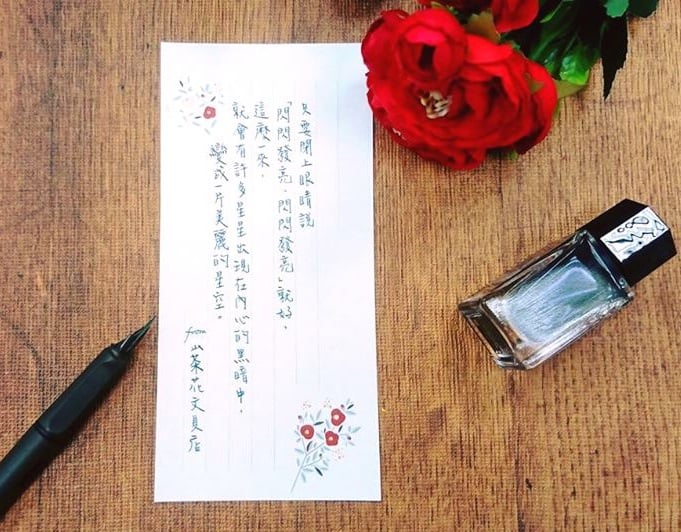 只要閉上眼睛說
「閃閃發亮、閃閃發亮」就好，
這麼一來，
就會有許多星星出現在內心的黑暗中，
變成一片美麗的星空。
from 山茶花文具店